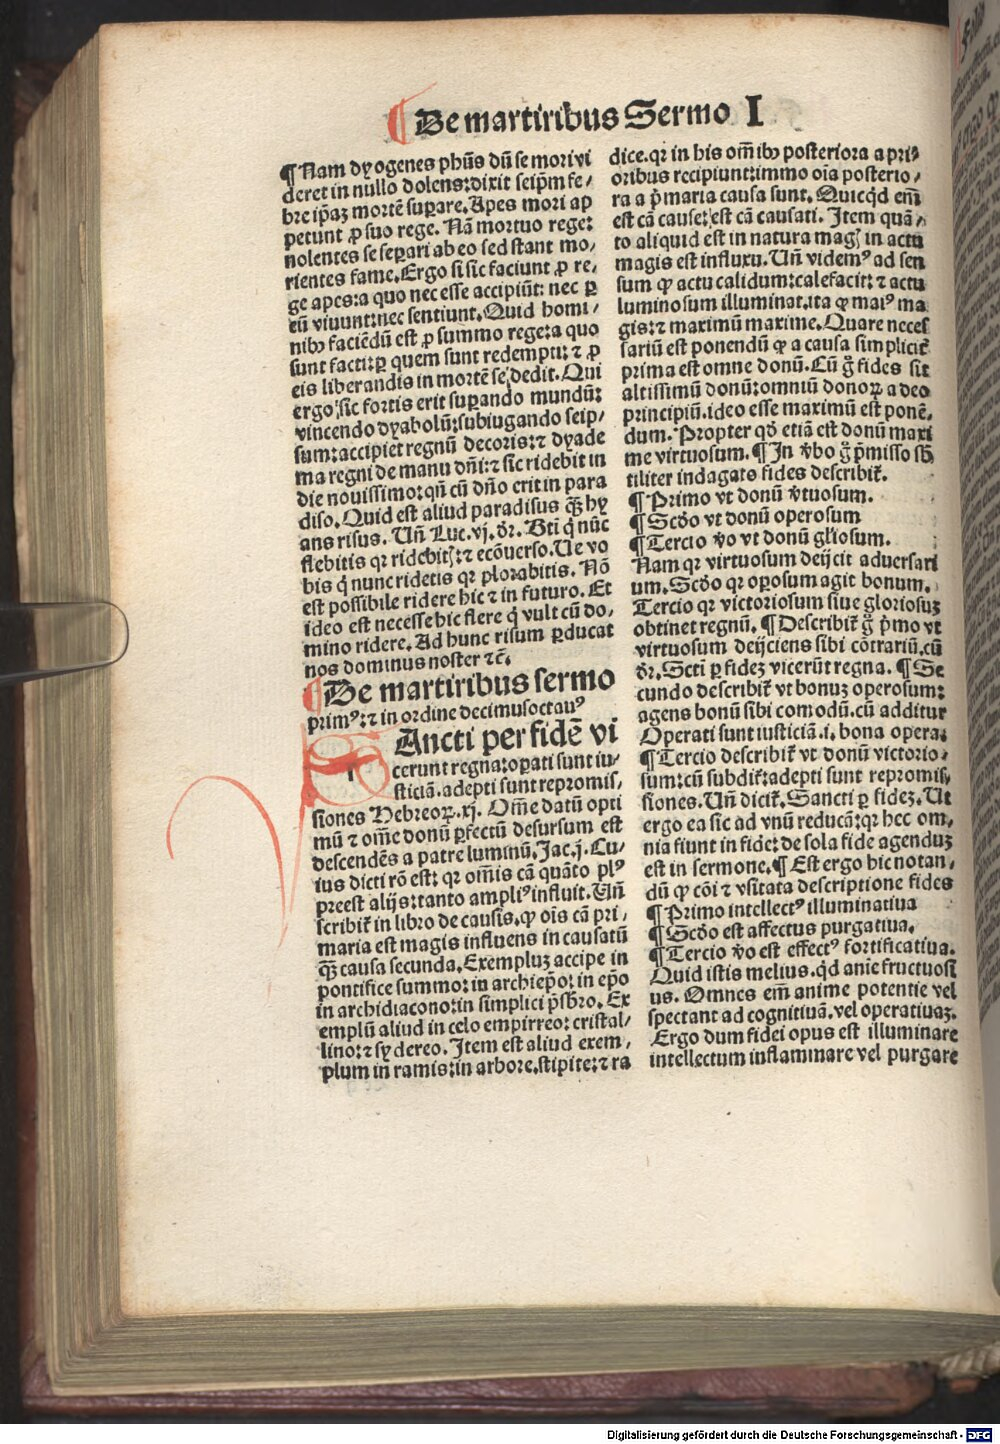 De martiribus Sermo I
¶Nam dyogenes phūs dū se morivi
deret in nullo dolens: dixit seip̄m fe⸗
bre ip̄aꝫ mortē suꝑare. Apes mori ap
petunt ꝓ suo rege. Nā mortuo rege:
nolentes se seꝑari ab eo sed stant mo⸗
rientes fame. Ergo si sic faciunt ꝓ re⸗
ge apes: a quo nec esse accipiūt: nec ꝑ
eū viuunt: nec sentiunt. Quid homi⸗
nibꝰ faciēdū est ꝓ summo rege: a quo
sunt facti: ꝑ quem sunt redempti: ⁊ ꝓ
eis liberandis in mortē se dedit. Qui
ergo sic fortis erit suꝑando mundū:
vincendo dyabolū: subiugando seip⸗
sum: accipiet regnū decoris: ⁊ dyade
ma regni de manu dn̄i: ⁊ sic ridebit in
die nouissimo: qn̄ cū dn̄o erit in para
diso. Quid est aliud paradisus qꝫ hy
ans risus. Un̄ Luc. vj. dr̄. Bt̄i q̄ nūc
flebitis qꝛ ridebit: ⁊ ecōuerso. Ue vo
bis q̄ nunc ridetis qꝛ plorabitis. Nō
est possibile ridere hic ⁊ in futuro. Et
ideo est necesse hic flere q̄ vult cū do⸗
mino ridere. Ad hunc risum ꝑducat
nos dominus noster ⁊c̄.
De martiribus sermo
primꝰ: ⁊ in ordine decimusoctauꝰ
Ancti per fidē vi
cerunt regna: oꝑati sunt iu⸗
sticiā. adepti sunt repromis⸗
siones Hebreoꝝ. xj. Om̄e datū opti
mū ⁊ om̄e donū ꝑfectū desursum est
descendēs a patre luminū. Jac. j. Cu⸗
ius dicti rō est: qꝛ om̄is cā quāto plꝰ
preest alijs: tanto ampliꝰ influit. Un̄
scribit̄ in libro de causis. ꝙ oīs cā pri⸗
maria est magis influens in causatū
qꝫ causa secunda. Exempluꝫ accipe in
pontifice summo: in archiep̄o: in ep̄o
in archidiacono: in simplici p̄sbr̄o. Ex
emplū aliud in celo empirreo: cristal⸗
lino: ⁊ sydereo. Item est aliud exem⸗
plum in ramis: in arbore. stipite: ⁊ ra
dice. qꝛ in his om̄ibꝰ posteriora a pri⸗
oribus recipiunt: immo oīa posterio⸗
ra a p̄maria causa sunt. Quicqd em̄
est cā cause: est cā causati. Item quā⸗
to aliquid est in natura mag in actu
magis est influxu. Un̄ videmꝰ ad sen
sum ꝙ actu calidum: calefacit: ⁊ actu
luminosum illuminat. ita ꝙ maiꝰ ma
gis: ⁊ maximū maxime. Quare neces
sariū est ponendū ꝙ a causa simplicit̄
prima est omne donū. Cū g̊ fides sit
altissimū donū: omniū donoꝝ a deo
principiū. ideo esse maximū est ponē⸗
dum. Propter qd̄ etiā est donū maxi
me virtuosum. ¶In v̄bo g̊ p̄misso sb̄
tiliter indagato fides describit̄.
¶Primo vt donū v̄tuosum.
¶Scd̄o vt donū operosum
¶Tercio v̄o vt donū gl̄iosum.
Nam qꝛ virtuosum deijcit aduersari
um. Scd̄o qꝛ oꝑosum agit bonum.
Tercio qꝛ victoriosum siue gloriosuꝫ
obtinet regnū. ¶Describit̄ g̊ p̄mo vt
virtuosum deijciens sibi cōtrariū. cū
dr̄. Scti ꝑ fideꝫ vicerūt regna. ¶Se
cundo describit̄ vt bonuꝫ operosum:
agens bonū sibi comodū. cū additur
Operati sunt iusticiā. i. bona opera:
¶Tercio describit̄ vt donū victorio⸗
sum: cū subdit̄: adepti sunt repromis⸗
siones. Un̄ dicit̄. Sancti ꝑ fideꝫ. Ut
ergo ea sic ad vnū reducā: qꝛ hec om⸗
nia fiunt in fide: de sola fide agenduꝫ
est in sermone. ¶Est ergo hic notan⸗
dū ꝙ cōi ⁊ vsitata descriptione fides
¶Primo intellectꝰ illuminatiua
¶Scd̄o est affectus purgatiua.
¶Tercio v̄o est effectꝰ fortificatiua.
Quid istis melius. qd anīe fructuosi
us. Omnes em̄ anime potentie vel
spectant ad cognitiuā. vel operatiuaꝫ.
Ergo dum fidei opus est illuminare
intellectum inflammare vel purgare
Digitalisierung gefördert durch die Deutsche Forschungsgemeinschaft - DFG